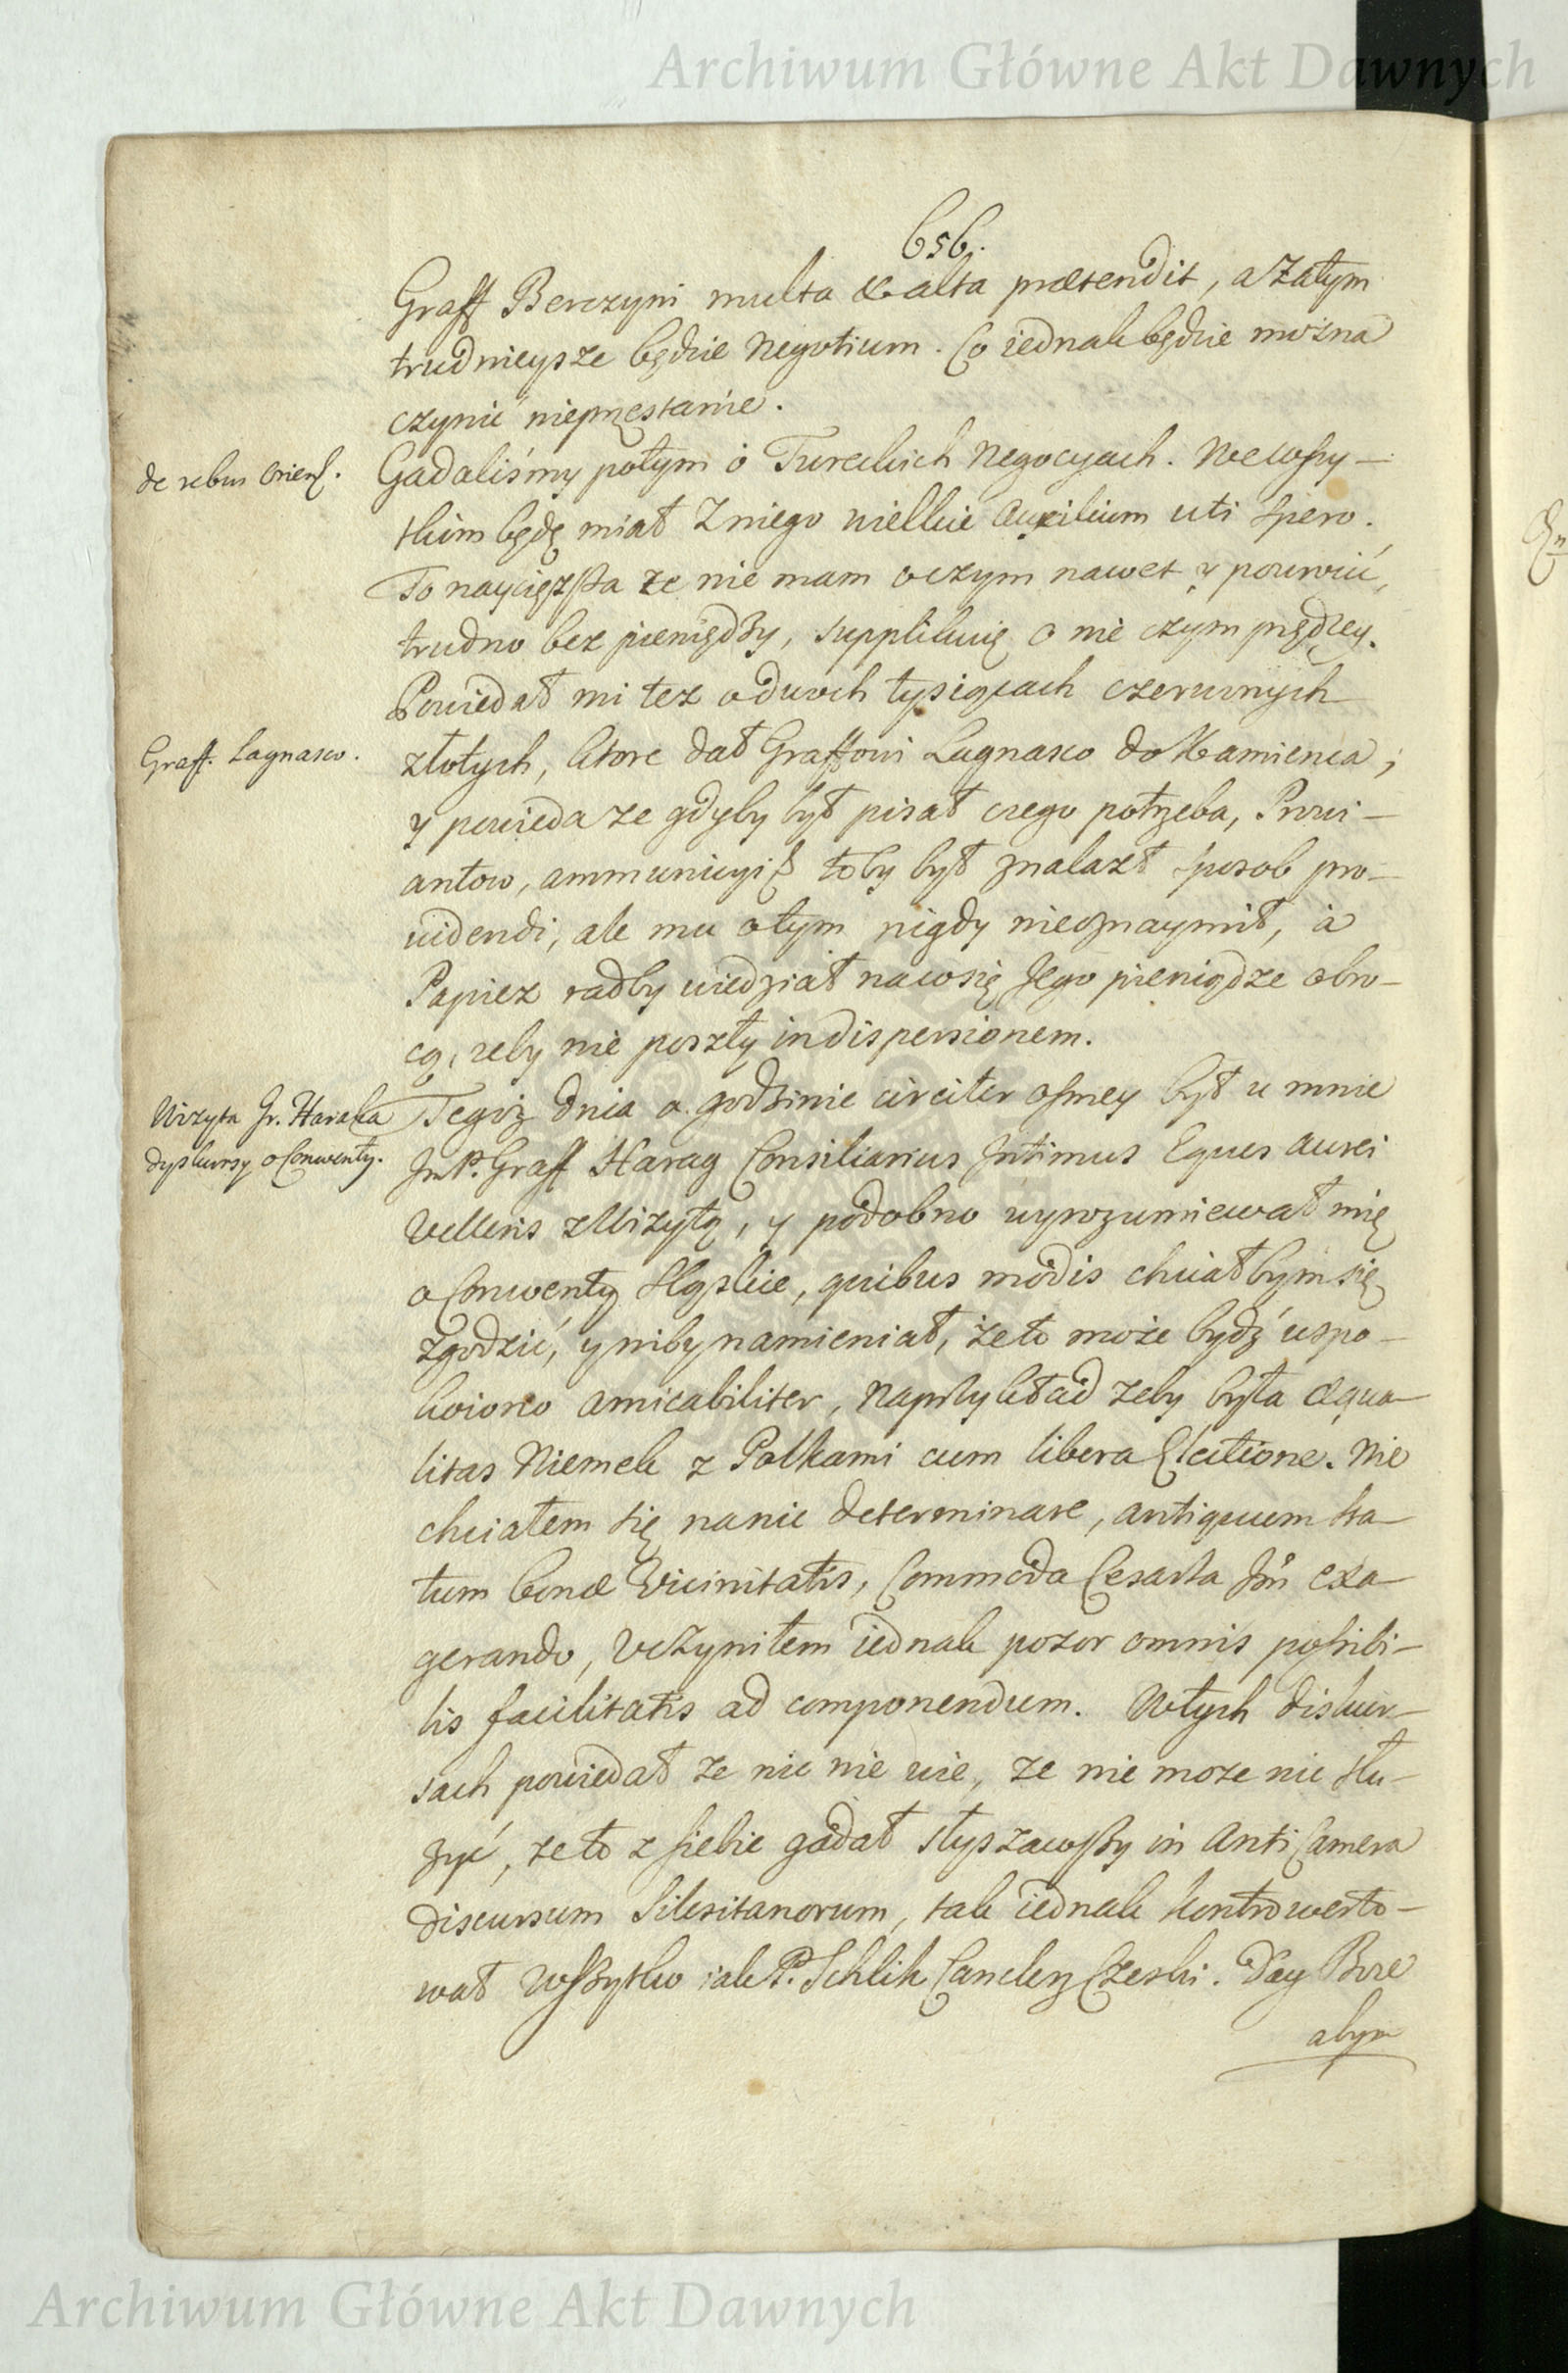 Archiwum Główne Akt Dawnych
656.
Graff Berczyni multa & alta prætendit, a Zatym
trudnieysze będzie Negotium. Co iednak będzie można
czynić nieprzestanie.
de rebus Orient.
Gadaliśmy potym o Tureckich Negocyach. We wszy–
stkim będę miał Zniego wielkie Auxilium uti spero.
To naycięższa ze nie mam oczym nawet y pouwić,
trudno bez pieniędzy, supplikuię o nie czym prędzey.
Powiedał mi tez o dwoch tysiącach czerwonych
Graff. Lagnasco.
złotych, ktore dał Graffowi Lagnasco do Kamienca;
y powieda ze gdyby był pisał czego potrzeba, Prowi–
antow, ammunicyi & toby był znalazł sposob pro–
uidendi, ale mu otym nigdy nieoznaymił, à
Papiez radby wiedział nacosię Jego pieniądze obro–
cą, zeby nie poszły indispersionem.
Wizyta Gr. Haraka
dyskursy o Conwenty.
Tegoż dnia o godzinie circiter osmey był u mnie
JmP. Graff Harag Consiliarius Intimus Eques Aurei
Velleris z Wizytą, y podobno wyrozumiewał mię
o Conwenty Sląskie, quibus modis chciałbym się
zgodzić, y niby namieniał, że to może bydź uspo–
koiono amicabiliter, naprzykład zeby była æqua–
litas Niemek z Polkami cum libera Electione. Nie
chciałem się nanic determinare, antiquum sta–
tum bonæ Vicinitatis, Commoda Cesarza Jmi exa–
gerando, Uczyniłem iednak pozor omnis possibi–
lis facilitatis ad componendum. Wtych diskur–
sach powiedał ze nic nie wie, ze nie moze nic słu–
żyć, ze to z siebie gadał słyszawszy in Anti Camera
discursum Silesitanorum, tak iednak kontrowerto–
wał wszystko iak P. Schlik Canclerz Czeski. Day Boze
abym
Archiwum Główne Akt Dawnych